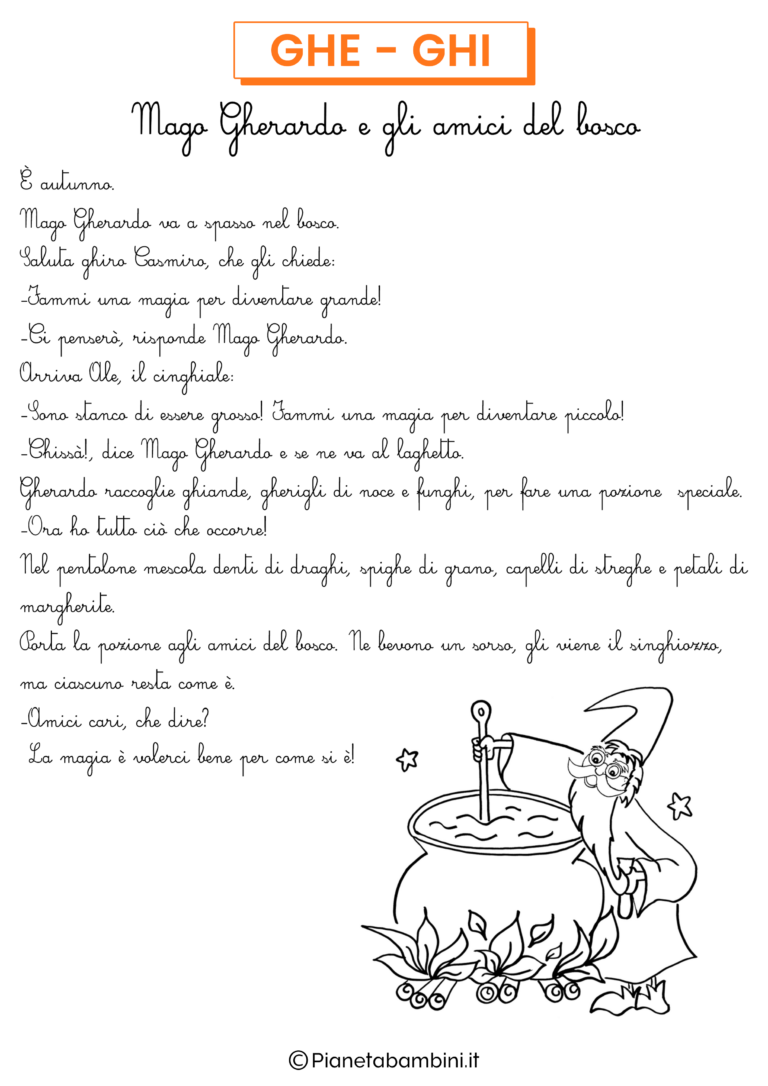 GHE - GHI
Mago Gherardo e gli amici del bosco
È autunno.
Mago Gherardo va a spasso nel bosco.
Saluta ghiro Casmiro, che gli chiede:
-Fammi una magia per diventare grande!
-Ci penserò, risponde Mago Gherardo.
Arriva Ale, il cinghiale:
-Sono stanco di essere grosso! Fammi una magia per diventare piccolo!
-Chissà!, dice Mago Gherardo e se ne va al laghetto.
Gherardo raccoglie ghiande, gherigli di noce e funghi, per fare una pozione speciale.
-Ora ho tutto ciò che occorre!
Nel pentolone mescola denti di draghi, spighe di grano, capelli di streghe e petali di
margherite.
Porta la pozione agli amici del bosco. Ne bevono un sorso, gli viene il singhiozzo,
ma ciascuno resta come è.
-Amici cari, che dire?
La magia è volerci bene per come si è!
©Pianetabambini.it